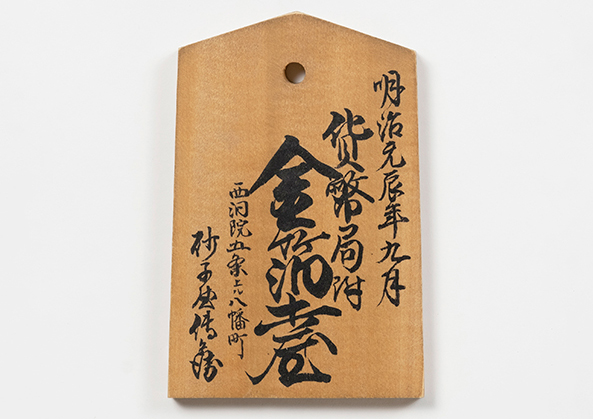 明治元辰年九月
貨幣局附
金箔屋
西洞院五条上ル八幡町
砂子屋傳兵衛